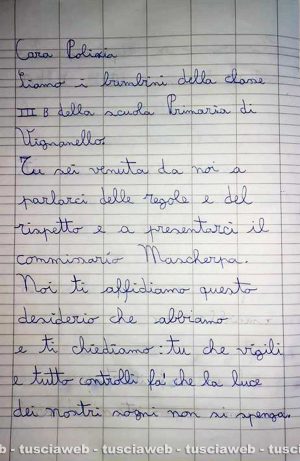 Cara Polizia
siamo i bambini della classe
III B della scuola Primaria di
Vignanello.
Tu sei venuta da noi a
parlarci delle regole e del
rispetto e a presentarci il
commissario Mascherpa.
Noi ti affidiamo questo
desiderio che abbiamo
e ti chiediamo: tu che vigili
e tutto controlli fa' che la luce
dei nostri sogni non si spenga.
b - tusciaweb - tusciaweb - tusciaweb -